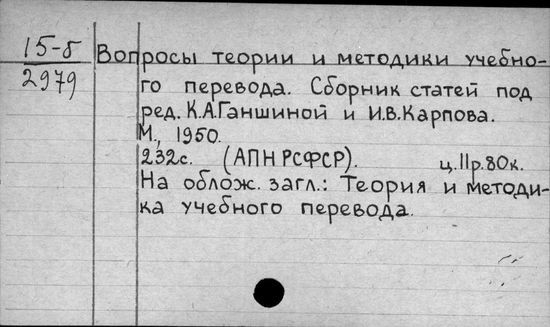 15-8
2979
Вопросы теории и методики учебно-
го перевода. Сборник статей под
ред. К.А.Ганшиной и И.В.Карпова.
М., 1950.
232с. (АПН РСФСР). ц.11р.80к.
На облож. загл.: Теория и методи-
ка учебного перевода.